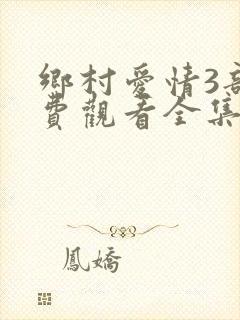 鄉村愛情3高
費觀看全集
鳳嬌